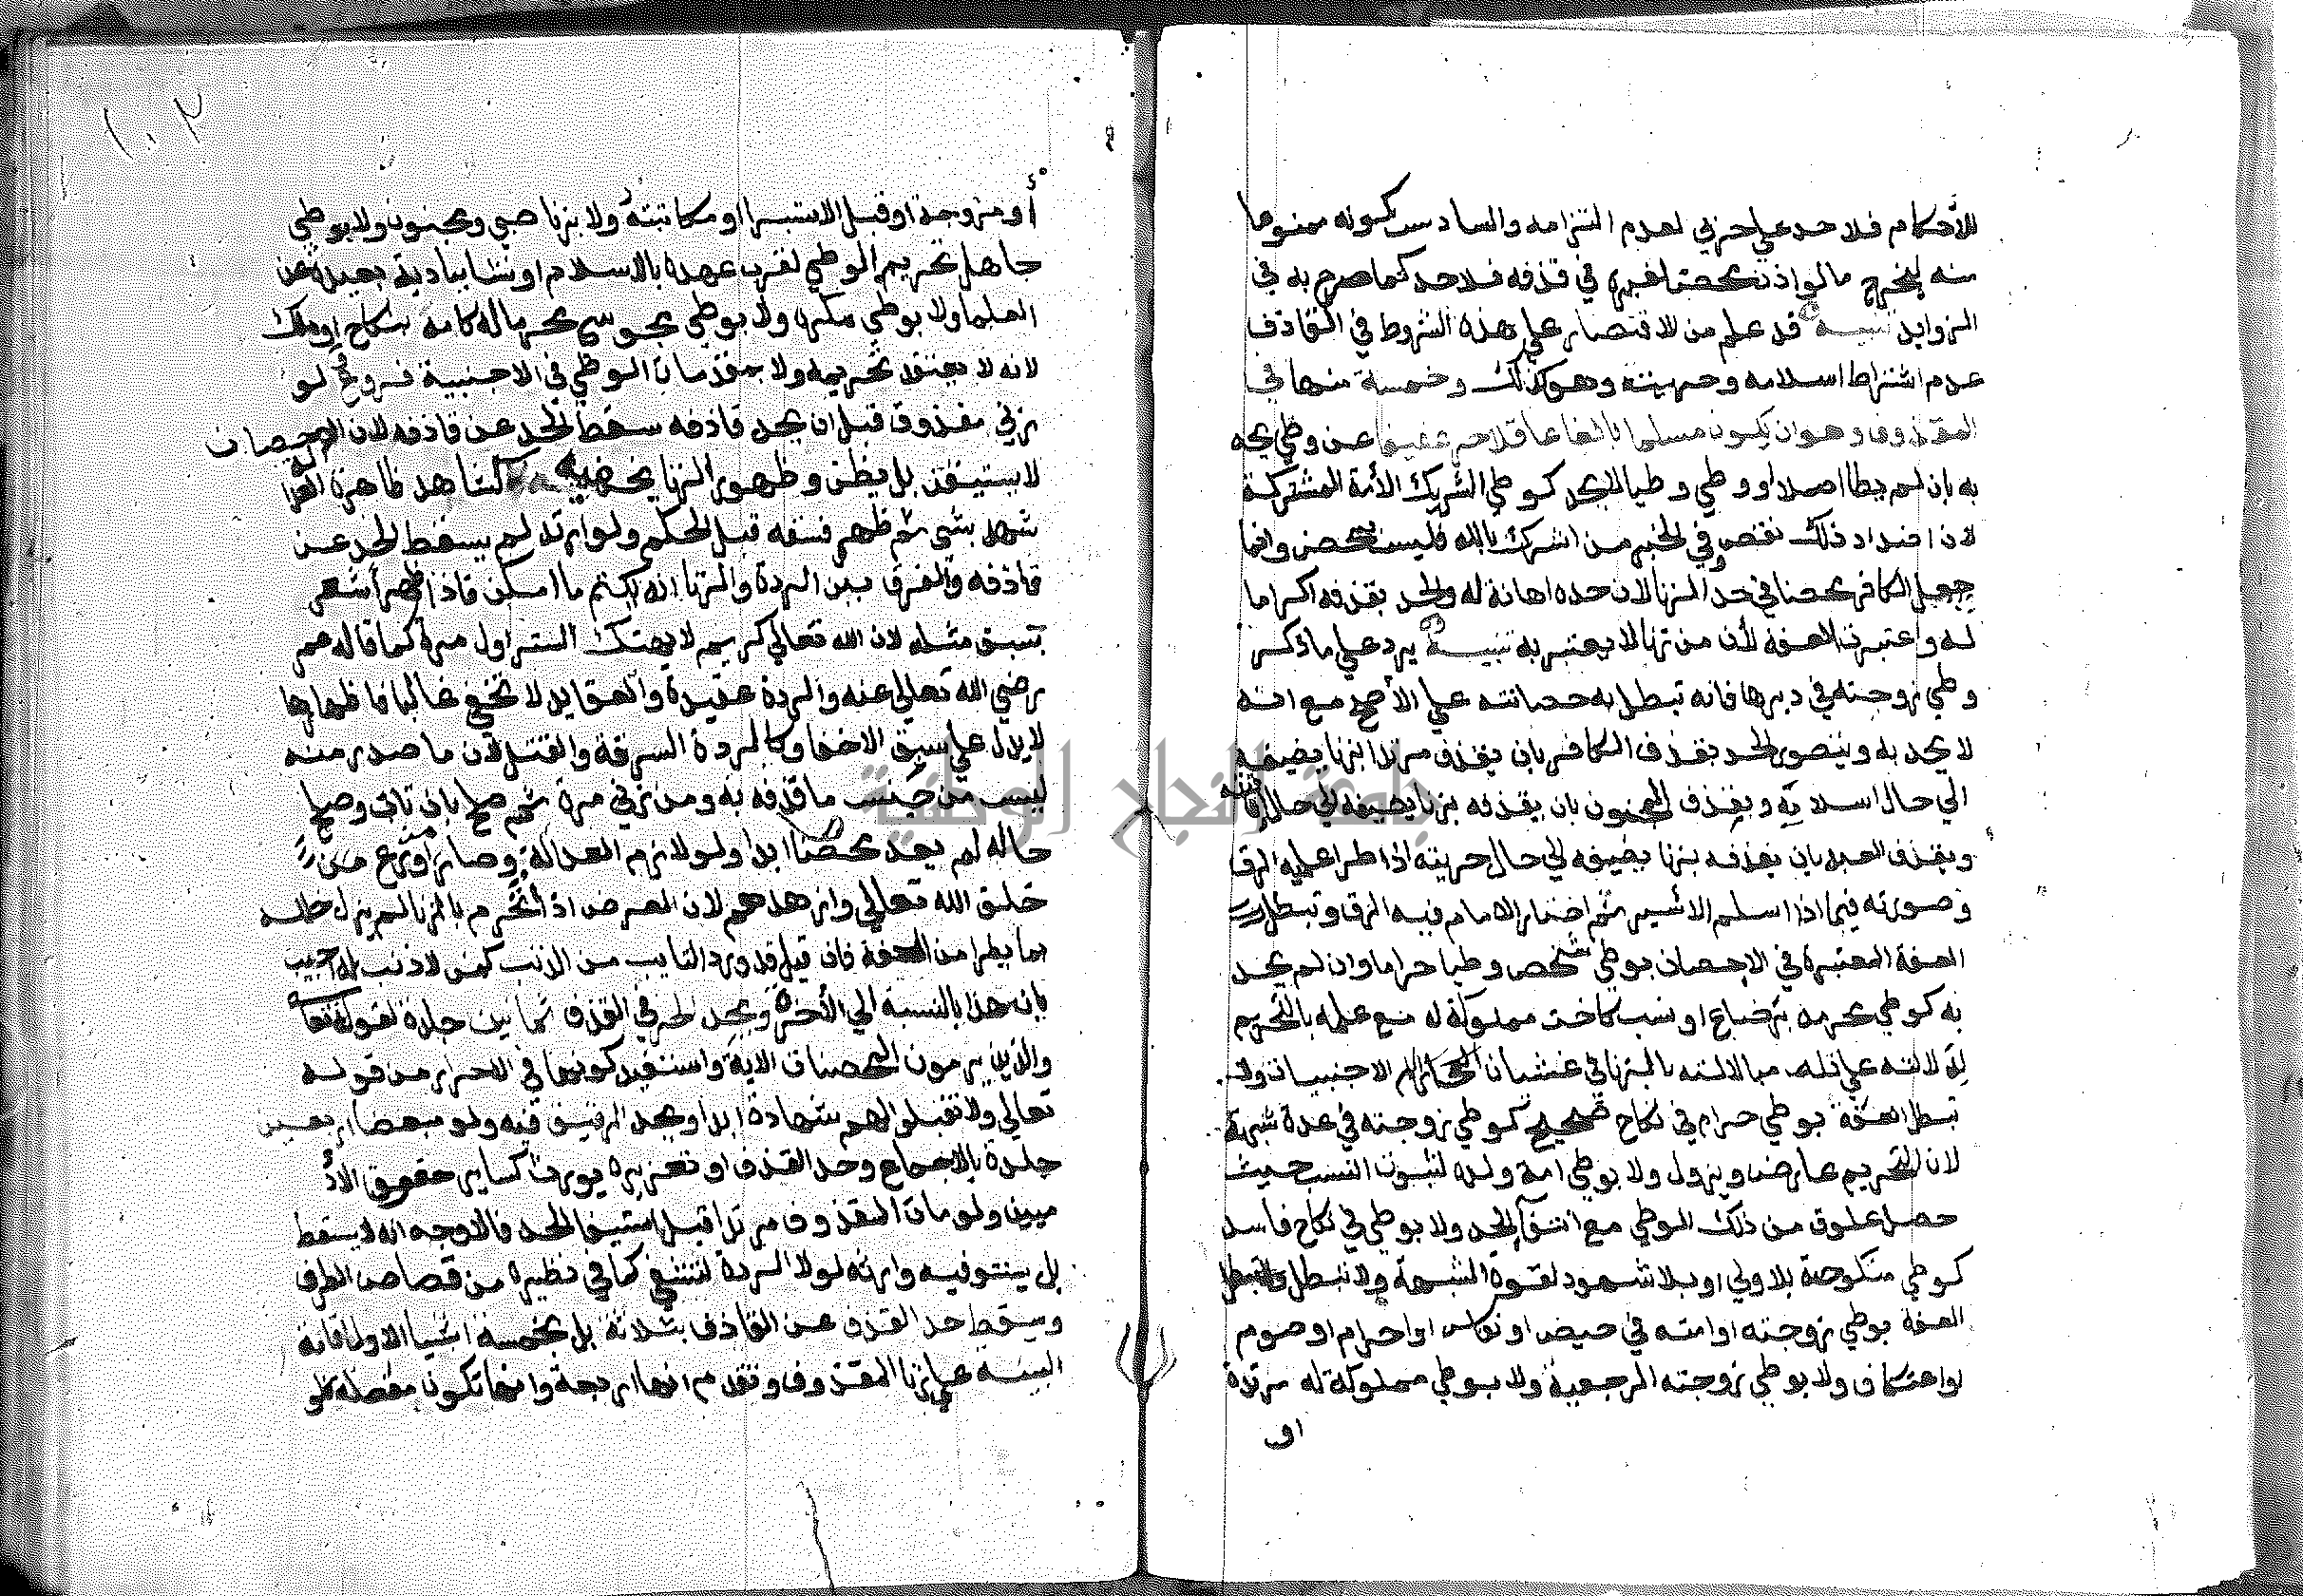 للأحكام فلا حد على حربي لعدم التزامه والسادس كونه ممنوعا
منه ليخرج ما لو اذن محصن لغيره في قذفه فلا حد كما صرح به في
الزوايد تنبيه قد علم من الاقتصار على هذه الشروط في القاذف
عدم اشتراط اسلامه وحريته وهو كذلك وخمسة منها في
المقذوف وهو ان يكون مسلما بالغا عاقلا حرا عفيفا عن وطي يحد
به بان لم يطا اصلا او وطي وطيا لا يحد كوطي الشريك الأمة المشتركة
لان اضداد ذلك نقص وفي الخبر من اشرك بالله فليس بمحصن وانما
جعل الكافر محصنا في حد الزنا لان حده اهانة له والحد بقذفه اكراما
له واعتبرت العفة لأن من زنا لا يعتبر به تنبيه يرد على ما ذكر
وطي زوجته في دبرها فانه تبطل به حصانته على الأصح مع انه
لا يحد به ويتصور الحد بقذف الكافر بان يقذف مرتدا بزنا يضيفه
الي حال اسلامه وبقذف المجنون بان يقذفه بزنا يضيفه الي حال افاقته
وبقذف العبد بان يقذفه بزنا يضيفه الي حال حريته اذا طرا عليه الرق
وصورته فيما اذا اسلم الاسير ثم اختار الامام فيه الرق وتبطل
العفة المعتبرة في الاحصان بوطي شخص وطيا حراما وان لم يحد
به كوطي محرمه برضاع او نسب كاخت مملوكة له مع علمه بالتحريم
لدلالته على قلة مبالاته بالزنا في غشيان المحارم الاجنبيات ولا
تبطل العفة بوطي حرام في نكاح صحيح كوطي زوجته في عدة شبهة
لان التحريم عارض ويزول ولا بوطي امة ولده لثبوت النسب حيث
حصل علوق من ذلك الوطي مع انتفا الحد ولا بوطي في نكاح فاسد
كوطي منكوحة بلا ولي او بلا شهود لقوة الشبهة ولا تبطل
العفة بوطي زوجته او امته في حيض او نفاس او احرام او صوم
او اعتكاف ولا بوطي زوجته الرجعية ولا بوطي مملوكة له مرتدة
او
أو مزوجة او قبل الاستبرا او مكاتبته ولا بزنا صبي ومجنون ولا بوطي
جاهل تحريم الوطي لقرب عهده بالاسلام او نشا ببادية بعيدة عن
العلما ولا بوطي مكره ولا بوطي مجوسي محرما له كامه بنكاح او ملك
لانه لا يعتقد تحريمه ولا بمقدمات الوطي في الاجنبية فروع لو
زني مقذوف قبل ان يحد قاذفه سقط الحد عن قاذفه لان الاحصان
لا يستيقن بل يظن وظهور الزنا يخدشه كالشاهد ظاهره العدالة
شهد بشي ثم ظهر فسقه قبل الحكم ولو ارتد لم يسقط الحد عن
قاذفه والفرق بين الردة والزنا انه يكتم ما امكن فاذا ظهر أشعر
بسبق مثله لان الله تعالي كريم لا يهتك الستر اول مرة كما قاله عمر
رضي الله تعالي عنه والردة عقيدة والعقايد لا تخفي غالبا فاظهارها
لا يدل على سبق الاخفا وكالردة السرقة والقتل لان ما صدر منه
ليس من جنس ما قذفه به ومن زني مرة ثم صلح بان تاب وصلح
حاله لم يعد محصنا ابدا ولو لازم العدالة وصار اورع من
خلق الله تعالي وازهدهم لان العرض اذا انخرم بالزنا لم يزل خلله
بما يطرا من العفة فان قيل قد ورد التايب من الذنب كمن لا ذنب له اجيب
بان هذا بالنسبة الي الأخرة ويحد الحر في القذف ثمانين جلدة لقوله تعالي
والذين يرمون المحصنات الاية واستفيد كونها في الاحرار من قوله
تعالي ولا تقبلوا لهم شهادة ابدا ويحد الرقيق فيه ولو مبعضا اربعين
جلدة بالاجماع وحد القذف او تعزيره يورث كساير حقوق الأد
ميين ولو مات المقذوف مرتدا قبل استيفا الحد فالاوجه انه لا يسقط
بل يستوفيه وارثه لولا الردة للتشفي كما في نظيره من قصاص الطرف
ويسقط حد القذف عن القاذف بثلاثة بل بخمسة اشيا الاول اقامة
البينة على زنا المقذوف وتقدم انها اربعة وانها تكون مفصلة فلو